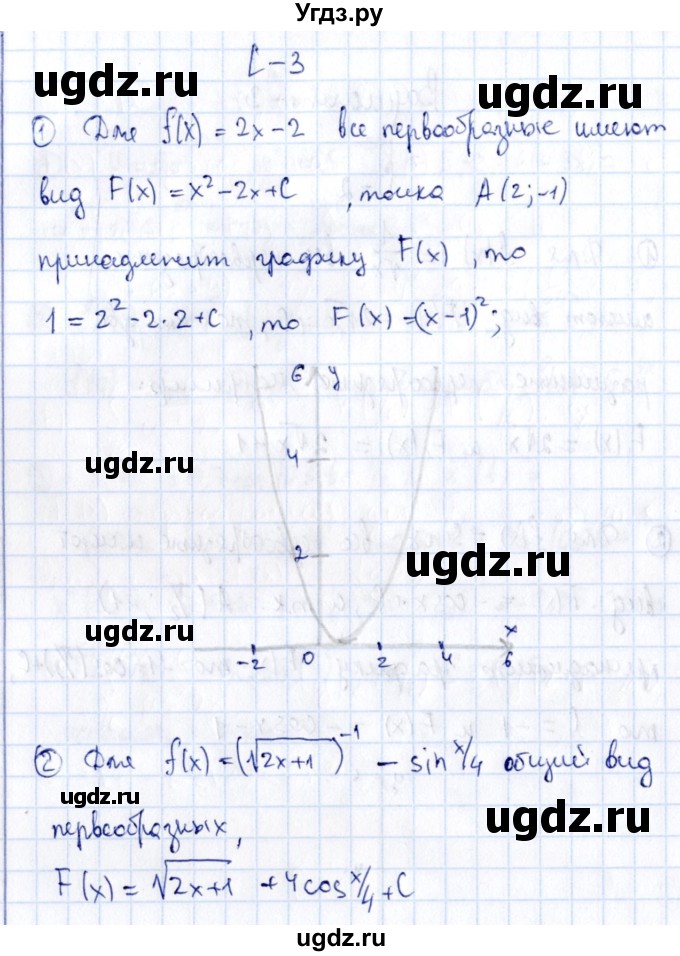 Угдз.ру
С-3
ugdz.ru
ugdz.ru
① Для f(x) = 2x - 2 все первообразные имеют
вид F(x) = x² - 2x + C , точка A(2; -1)
принадлежит графику F(x) , то
1 = 2² - 2·2 + C , то F(x) = (x - 1)²;
6 y
4
ugdz.ru
2
ugdz.ru
ugdz.ru
x
-2 0 2 4 6
② Для f(x) = (√2x+1)⁻¹ - sin x/4 общий вид
ugdz.ru
ugdz.ru
первообразных,
F(x) = √2x+1 + 4cos x/4 + C
ugdz.ru